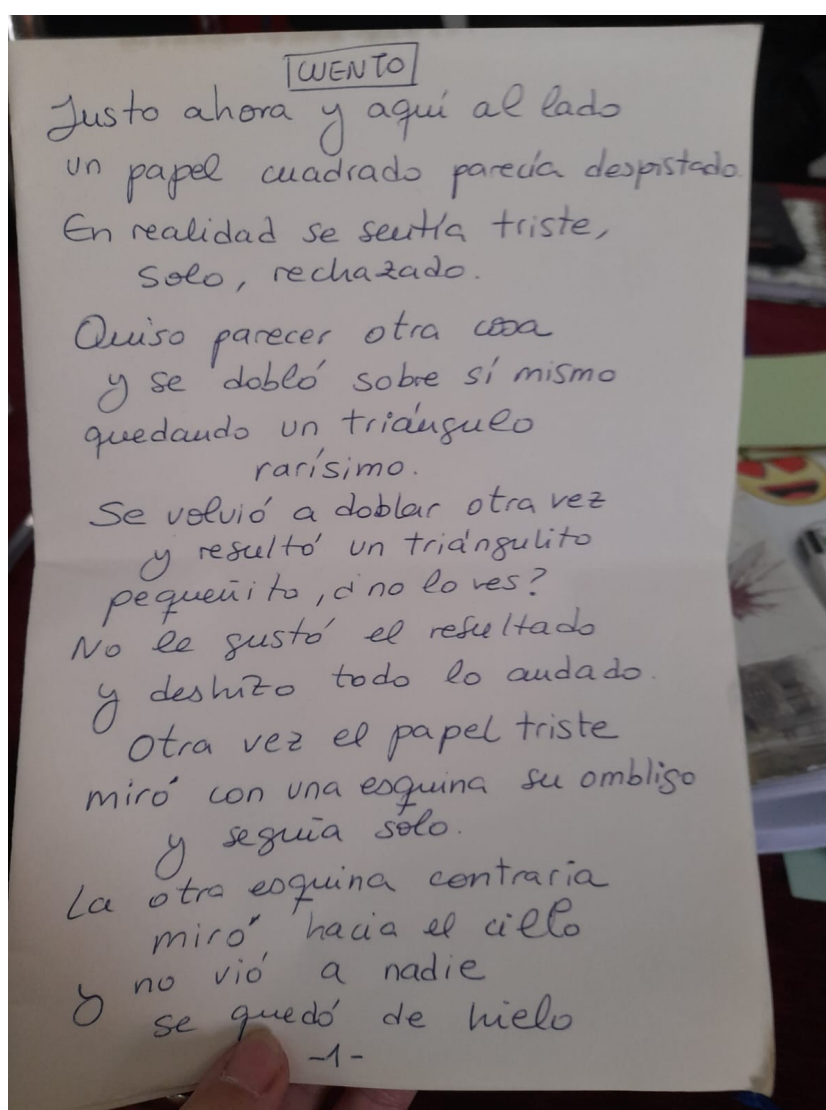 CUENTO
Justo ahora y aquí al lado
un papel cuadrado parecía despistado.
En realidad se sentía triste,
solo, rechazado.
Quiso parecer otra cosa
y se dobló sobre sí mismo
quedando un triángulo
rarísimo.
Se volvió a doblar otra vez
y resultó un triángulito
pequeñito, ¿no lo ves?
No le gustó el resultado
y deshizo todo lo andado.
Otra vez el papel triste
miró con una esquina su ombligo
y seguía sólo.
La otra esquina contraria
miró hacia el cielo
y no vió a nadie
se quedó de hielo
-1-